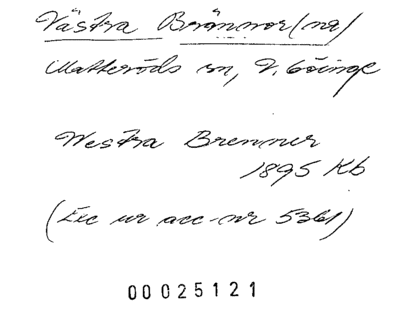 Västra Brännor(na)
Matteröds sn, V. Göinge
Westra Brenner
1895 Kb
(Exc ur acc-nr 5361)
00025121